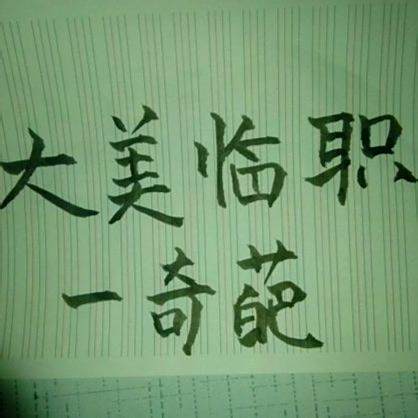 大美临职
一奇葩